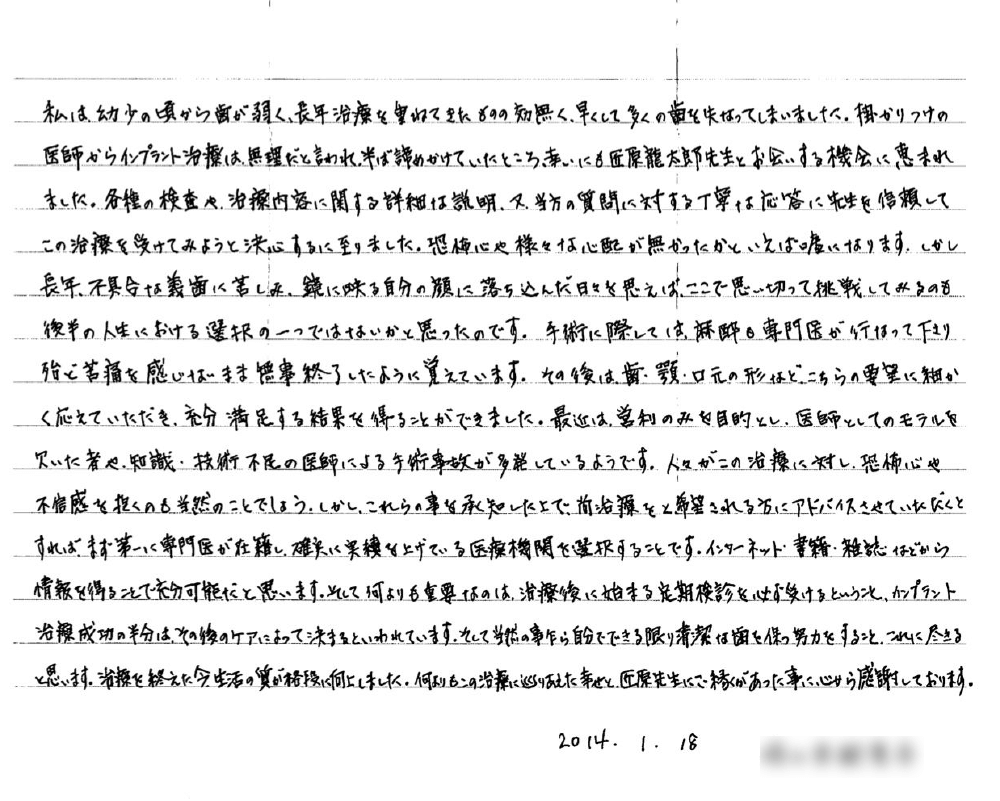 私は、幼少の頃から歯が弱く、長年治療を重ねてきたものの効無く、早くして多くの歯を失なってしまいました。掛かりつけの
医師からインプラント治療は、無理だと言われ、半ば諦めかけていたところ、幸いにも匠原龍太郎先生とお会いする機会に恵まれ
ました。各種の検査や、治療内容に関する詳細な説明、又、当方の質問に対する丁寧な応答に先生を信頼して
この治療を受けてみようと決心するに至りました。恐怖心や様々な心配が無かったかといえば嘘になります。しかし
長年、不具合な義歯に苦しみ、鏡に映る自分の顔に落ち込んだ日々を思えば、ここで思い切って挑戦してみるのも
後半の人生における選択の一つではないかと思ったのです。手術に際しては、麻酔も専門医が行なって下さり
殆ど苦痛を感じないまま無事終了したように覚えています。その後は、歯・顎・口元の形など、こちらの要望に細か
く応えていただき、充分満足する結果を得ることができました。最近は、営利のみを目的とし、医師としてのモラルを
欠いた者や、知識・技術不足の医師による手術事故が多発しているようです。人々がこの治療に対し、恐怖心や
不信感を抱くのも当然のことでしょう。しかし、これらの事を承知した上で尚治療をと希望される方にアドバイスさせていただくと
すれば、まず第一に専門医が在籍し、確実に実績を上げている医療機関を選択することです。インターネット・書籍・雑誌などから
情報を得ることで充分可能だと思います。そして何よりも重要なのは、治療後に始まる定期検診を必ず受けるということ、インプラント
治療成功の半分は、その後のケアによって決まるといわれています。そして当然の事乍ら自分でできる限り清潔な歯を保つ努力をすること、これに尽きる
と思います。治療を終えた今、生活の質が格段に向上しました。何よりもこの治療に巡りあえた幸せと、匠原先生にご縁があった事に心から感謝しております。
2014. 1. 18